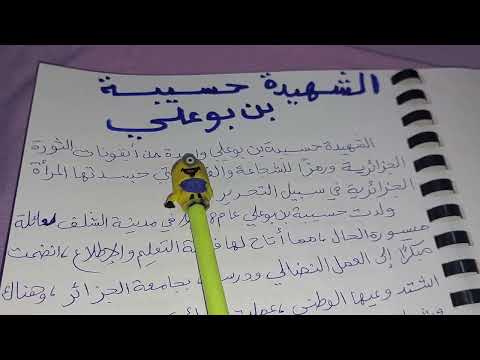 الشهيدة حسيبة
بن بوعلي
الشهيدة حسيبة بن بوعلي واحدة من أيقونات الثورة
الجزائرية ورمزا للشجاعة جسدتها المرأة
الجزائرية في سبيل التحرير
ولدت حسيبة بن بوعلي عام في مدينة الشلف لعائلة
ميسورة الحال، مما أتاح لها التعليم والإطلاع، انضمت
مبكرًا إلى العمل النضالي بجامعة الجزائر، وهناك
اشتد وعيها الوطني،